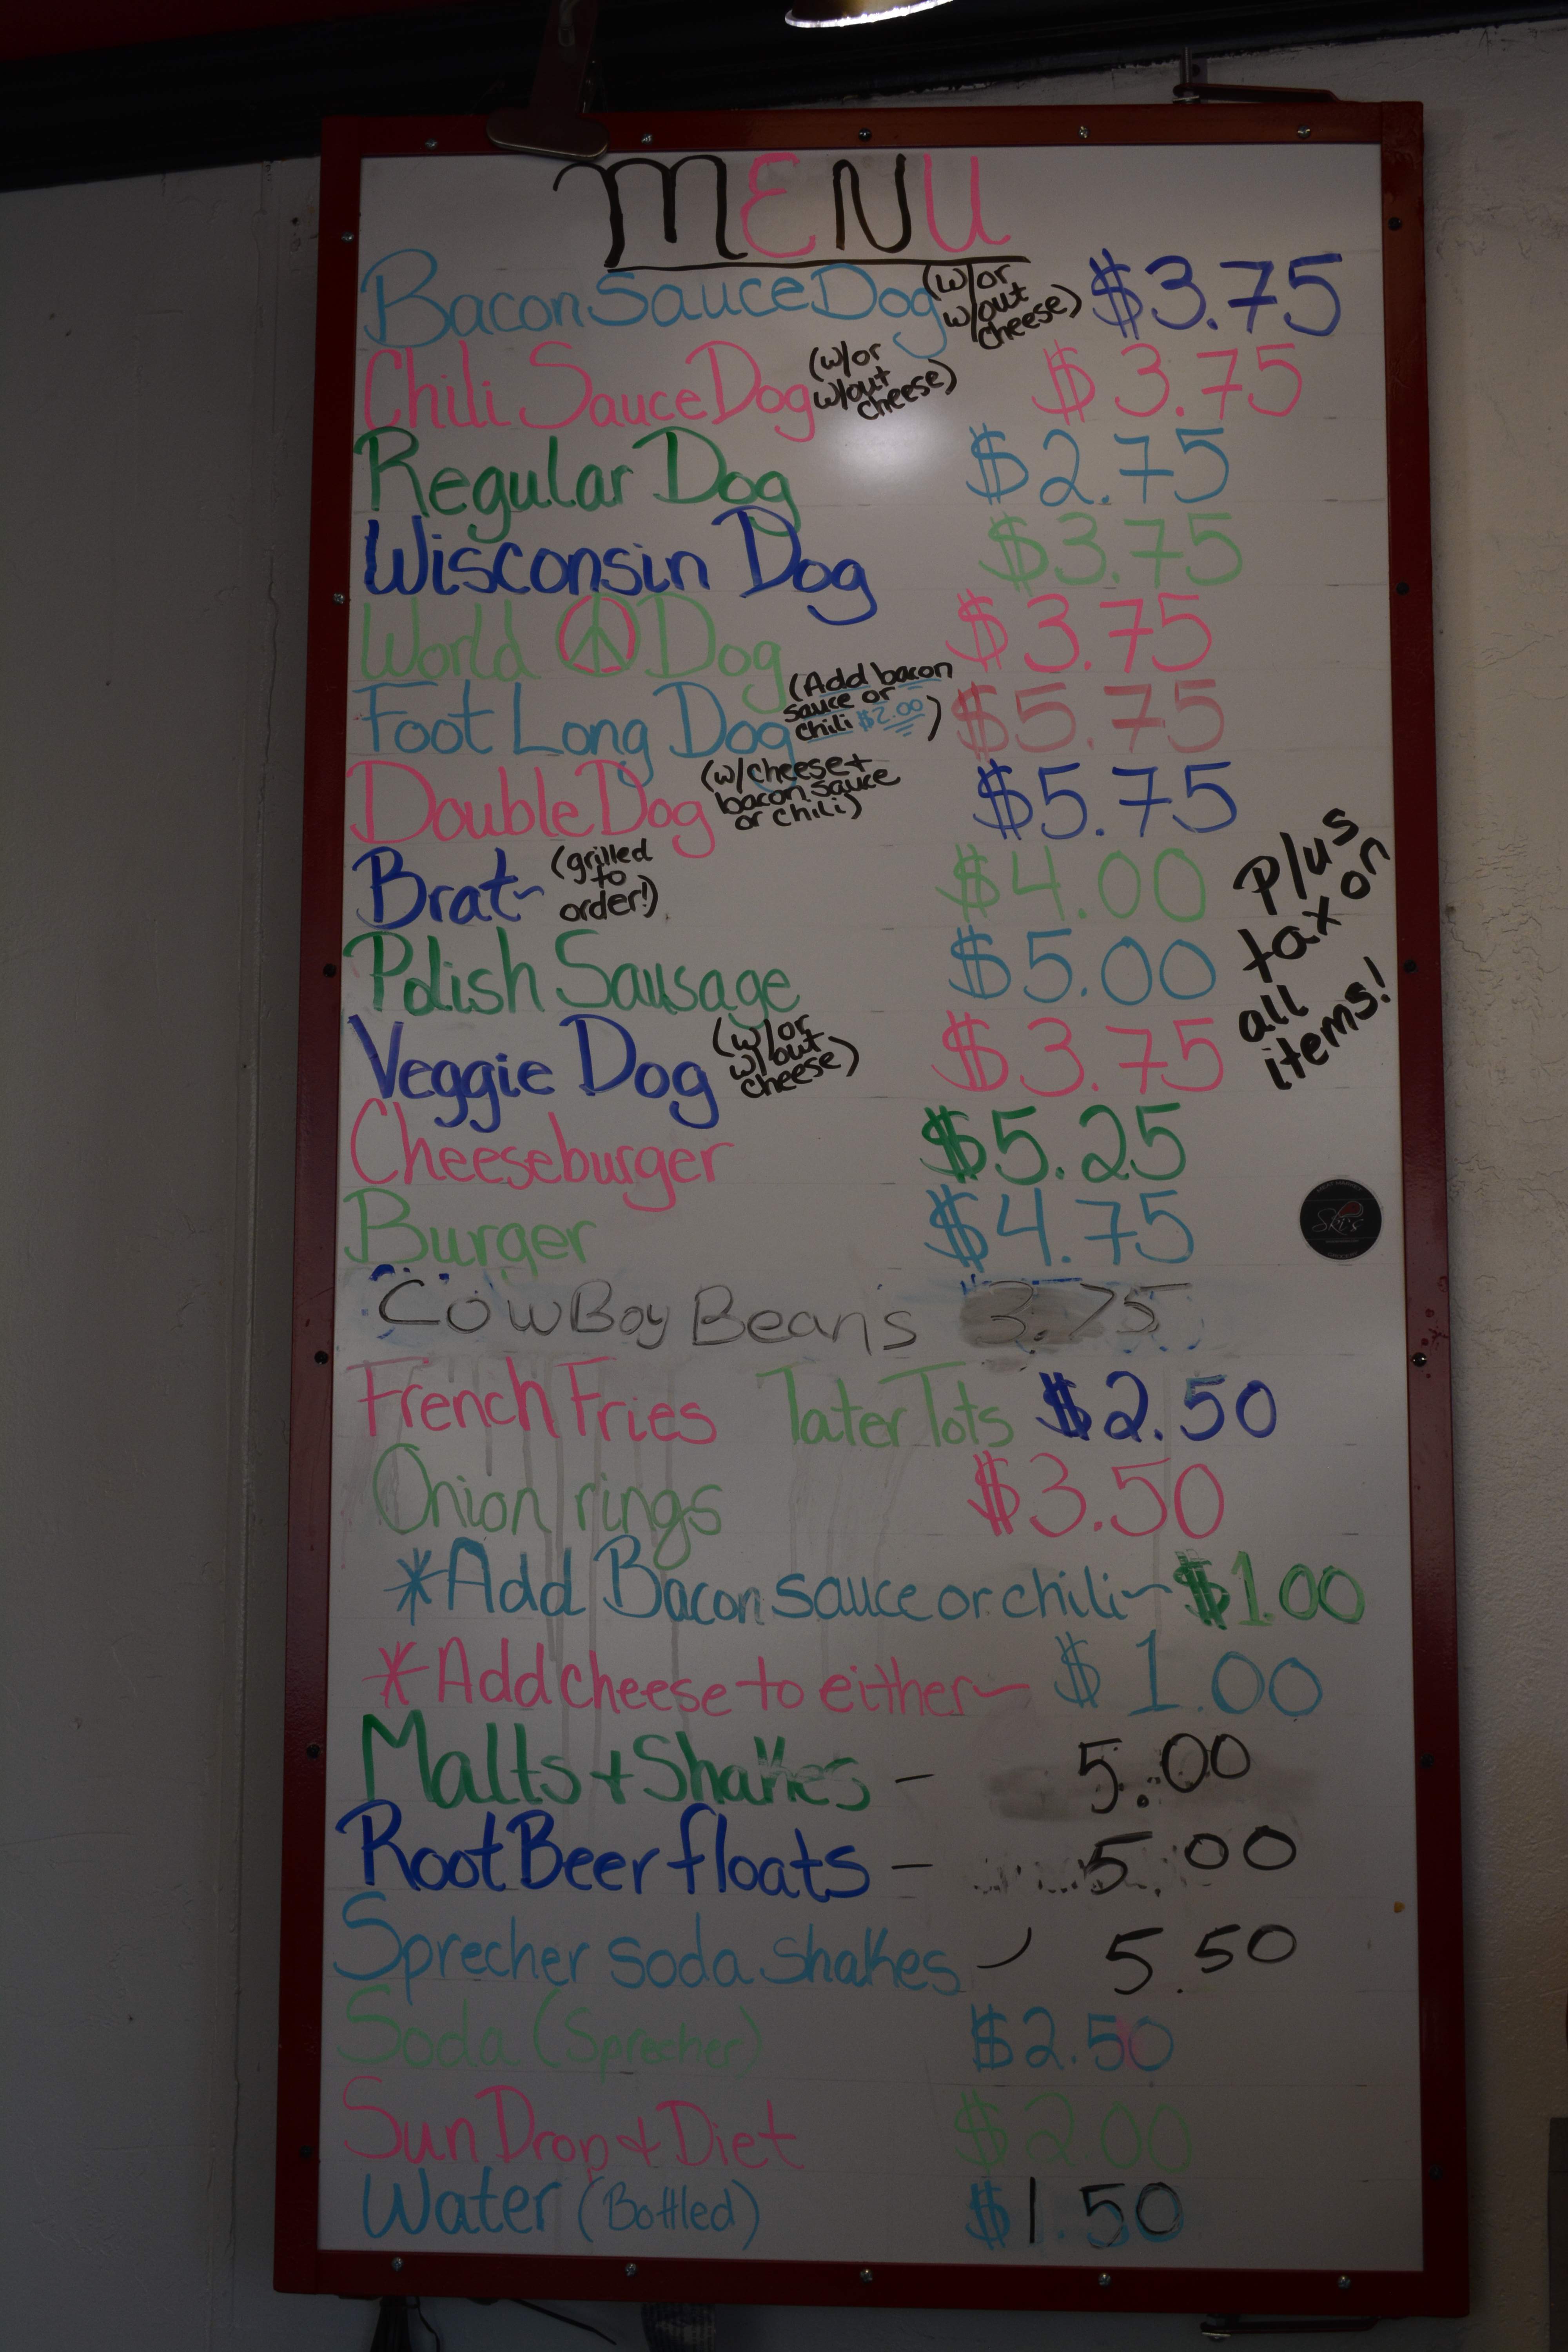 MENU
Bacon Sauce Dog (w/or w/out cheese) $3.75
Chili Sauce Dog (w/or w/out cheese) $3.75
Regular Dog $2.75
Wisconsin Dog $3.75
World ☮ Dog $3.75
Foot Long Dog (Add bacon sauce or chili $2.00) $5.75
Double Dog (w/cheese + bacon sauce or chili) $5.75
Brat~ (grilled to order!) $4.00
Polish Sausage $5.00
Veggie Dog (w/or w/out cheese) $3.75
Plus tax on all items!
Cheeseburger $5.25
Burger $4.75
Ski's
CowBoy Bean's 3.75
French Fries Tater Tots $2.50
Onion rings $3.50
*Add Bacon sauce or chili~ $1.00
*Add cheese to either~ $1.00
Malts + Shakes - 5.00
Root Beer floats - 5.00
Sprecher soda shakes - 5.50
Soda (Sprecher) $2.50
Sun Drop & Diet $2.00
Water (Bottled) $1.50